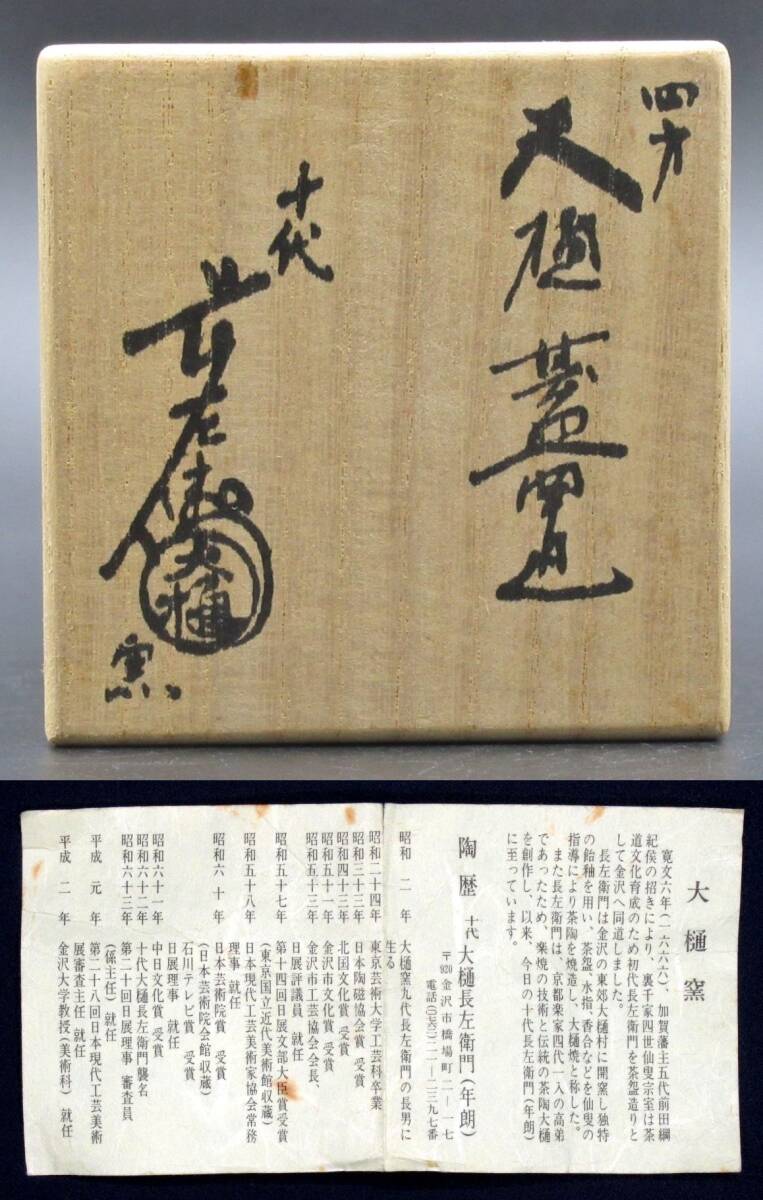 四方
大樋 蓋置
十代
長左衛門
大樋
窯
大樋窯
寛文六年(一六六六)、加賀藩主五代前田綱
紀侯の招きにより、裏千家四世仙叟宗室は茶
道文化育成のため初代長左衛門を茶盌造りと
して金沢へ同道しました。
長左衛門は金沢の東郊大樋村に開窯し独特
の飴釉を用い、茶盌、水指、香合などを仙叟の
指導により茶陶を焼造し、大樋焼と称した。
また長左衛門は、京都楽家四代一入の高弟
であったため、楽焼の技術と伝統の茶陶大樋
を創作し、以来、今日の十代長左衛門(年朗)
に至っています。
陶歴 十代 大樋長左衛門(年朗)
〒920 金沢市橋場町二―一七
電話(〇七六二)二一―二三九七番
昭和 二 年 大樋窯九代長左衛門の長男に
生る
昭和二十四年 東京芸術大学工芸科卒業
昭和三十三年 日本陶磁協会賞 受賞
昭和四十三年 北国文化賞 受賞
昭和五十一年 金沢市文化賞 受賞
昭和五十三年 金沢市工芸協会会長、
日展評議員 就任
昭和五十七年 第十四回日展文部大臣賞受賞
(東京国立近代美術館収蔵)
昭和五十八年 日本現代工芸美術家協会常務
理事 就任
昭和六十年 日本芸術院賞 受賞
(日本芸術院会館収蔵)
石川テレビ賞 受賞
日展理事 就任
昭和六十一年 中日文化賞 受賞
昭和六十二年 十代大樋長左衛門襲名
昭和六十三年 第二十回日展理事 審査員
(係主任) 就任
平成 元 年 第二十八回日本現代工芸美術
展審査主任 就任
平成 二 年 金沢大学教授(美術科) 就任